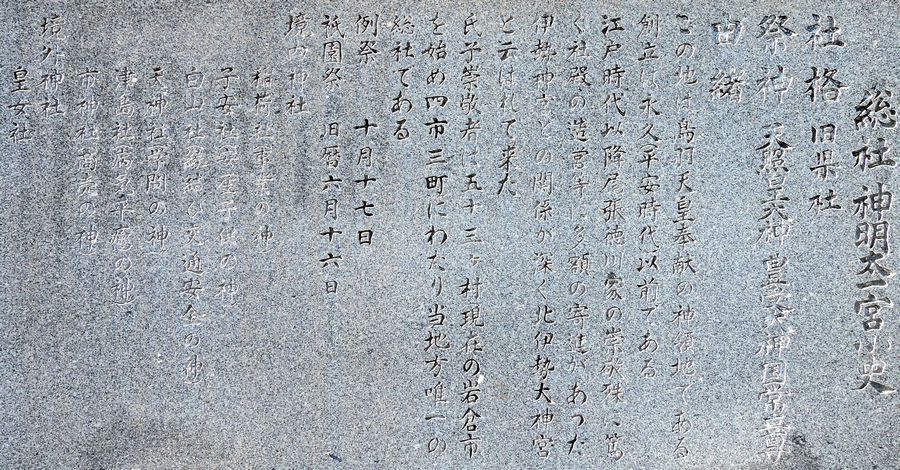 総社神明太一宮小史
社格 旧県社
祭神 天照皇大神 豊受大神 国常立尊
由緒
この地は鳥羽天皇奉献の神領地である
創立は永久平安時代以前である
江戸時代以降尾張徳川家の崇敬殊に篤
く社殿の造営等に多額の寄進があった
伊勢神宮との関係が深く北伊勢大神宮
と云はれて来た
氏子崇敬者は五十三ヶ村現在の岩倉市
を始め四市三町にわたり当地方唯一の
総社である
例祭 十月十七日
祇園祭 旧暦六月十六日
境内神社
稲荷社(事業の神)
子安社(安産子供の神)
白山社(縁結び交通安全の神)
天神社(学問の神)
津島社(病気平癒の神)
市神社(商売の神)
境外神社
皇女社